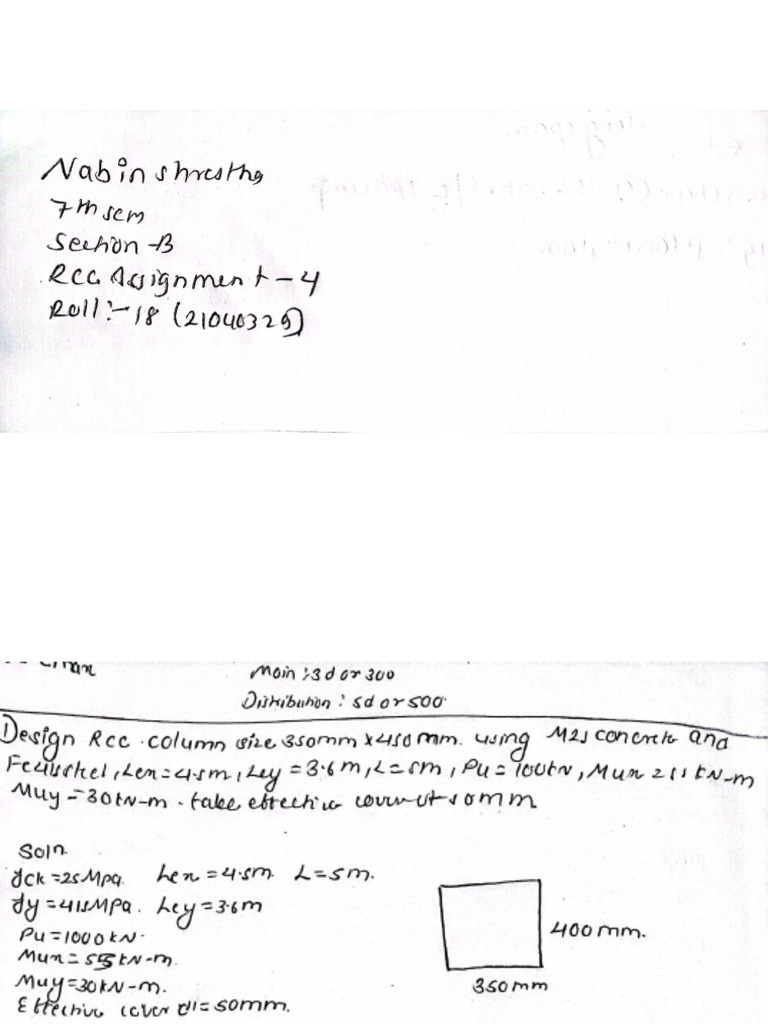 Nabin shrestha
7th sem
Section-B
RCC Assignment-4
Roll:-18 (21040329)
Main : 3d or 300
Distribution : 5d or 500.
Design Rcc column size 350mm x 450mm. using M25 concrete and
Fe415 steel, Lex=4.5m, Ley=3.6m, L=5m, Pu= kN, Mux= kN-m
Muy=30kN-m. take effective cover of 50mm
Soln
fck=25Mpa. Lex=4.5m L=5m.
fy=415MPa. Ley=3.6m
Pu=1000kN.
Mux= kN-m.
Muy=30kN-m.
Effective cover d'=50mm.
400mm.
350mm